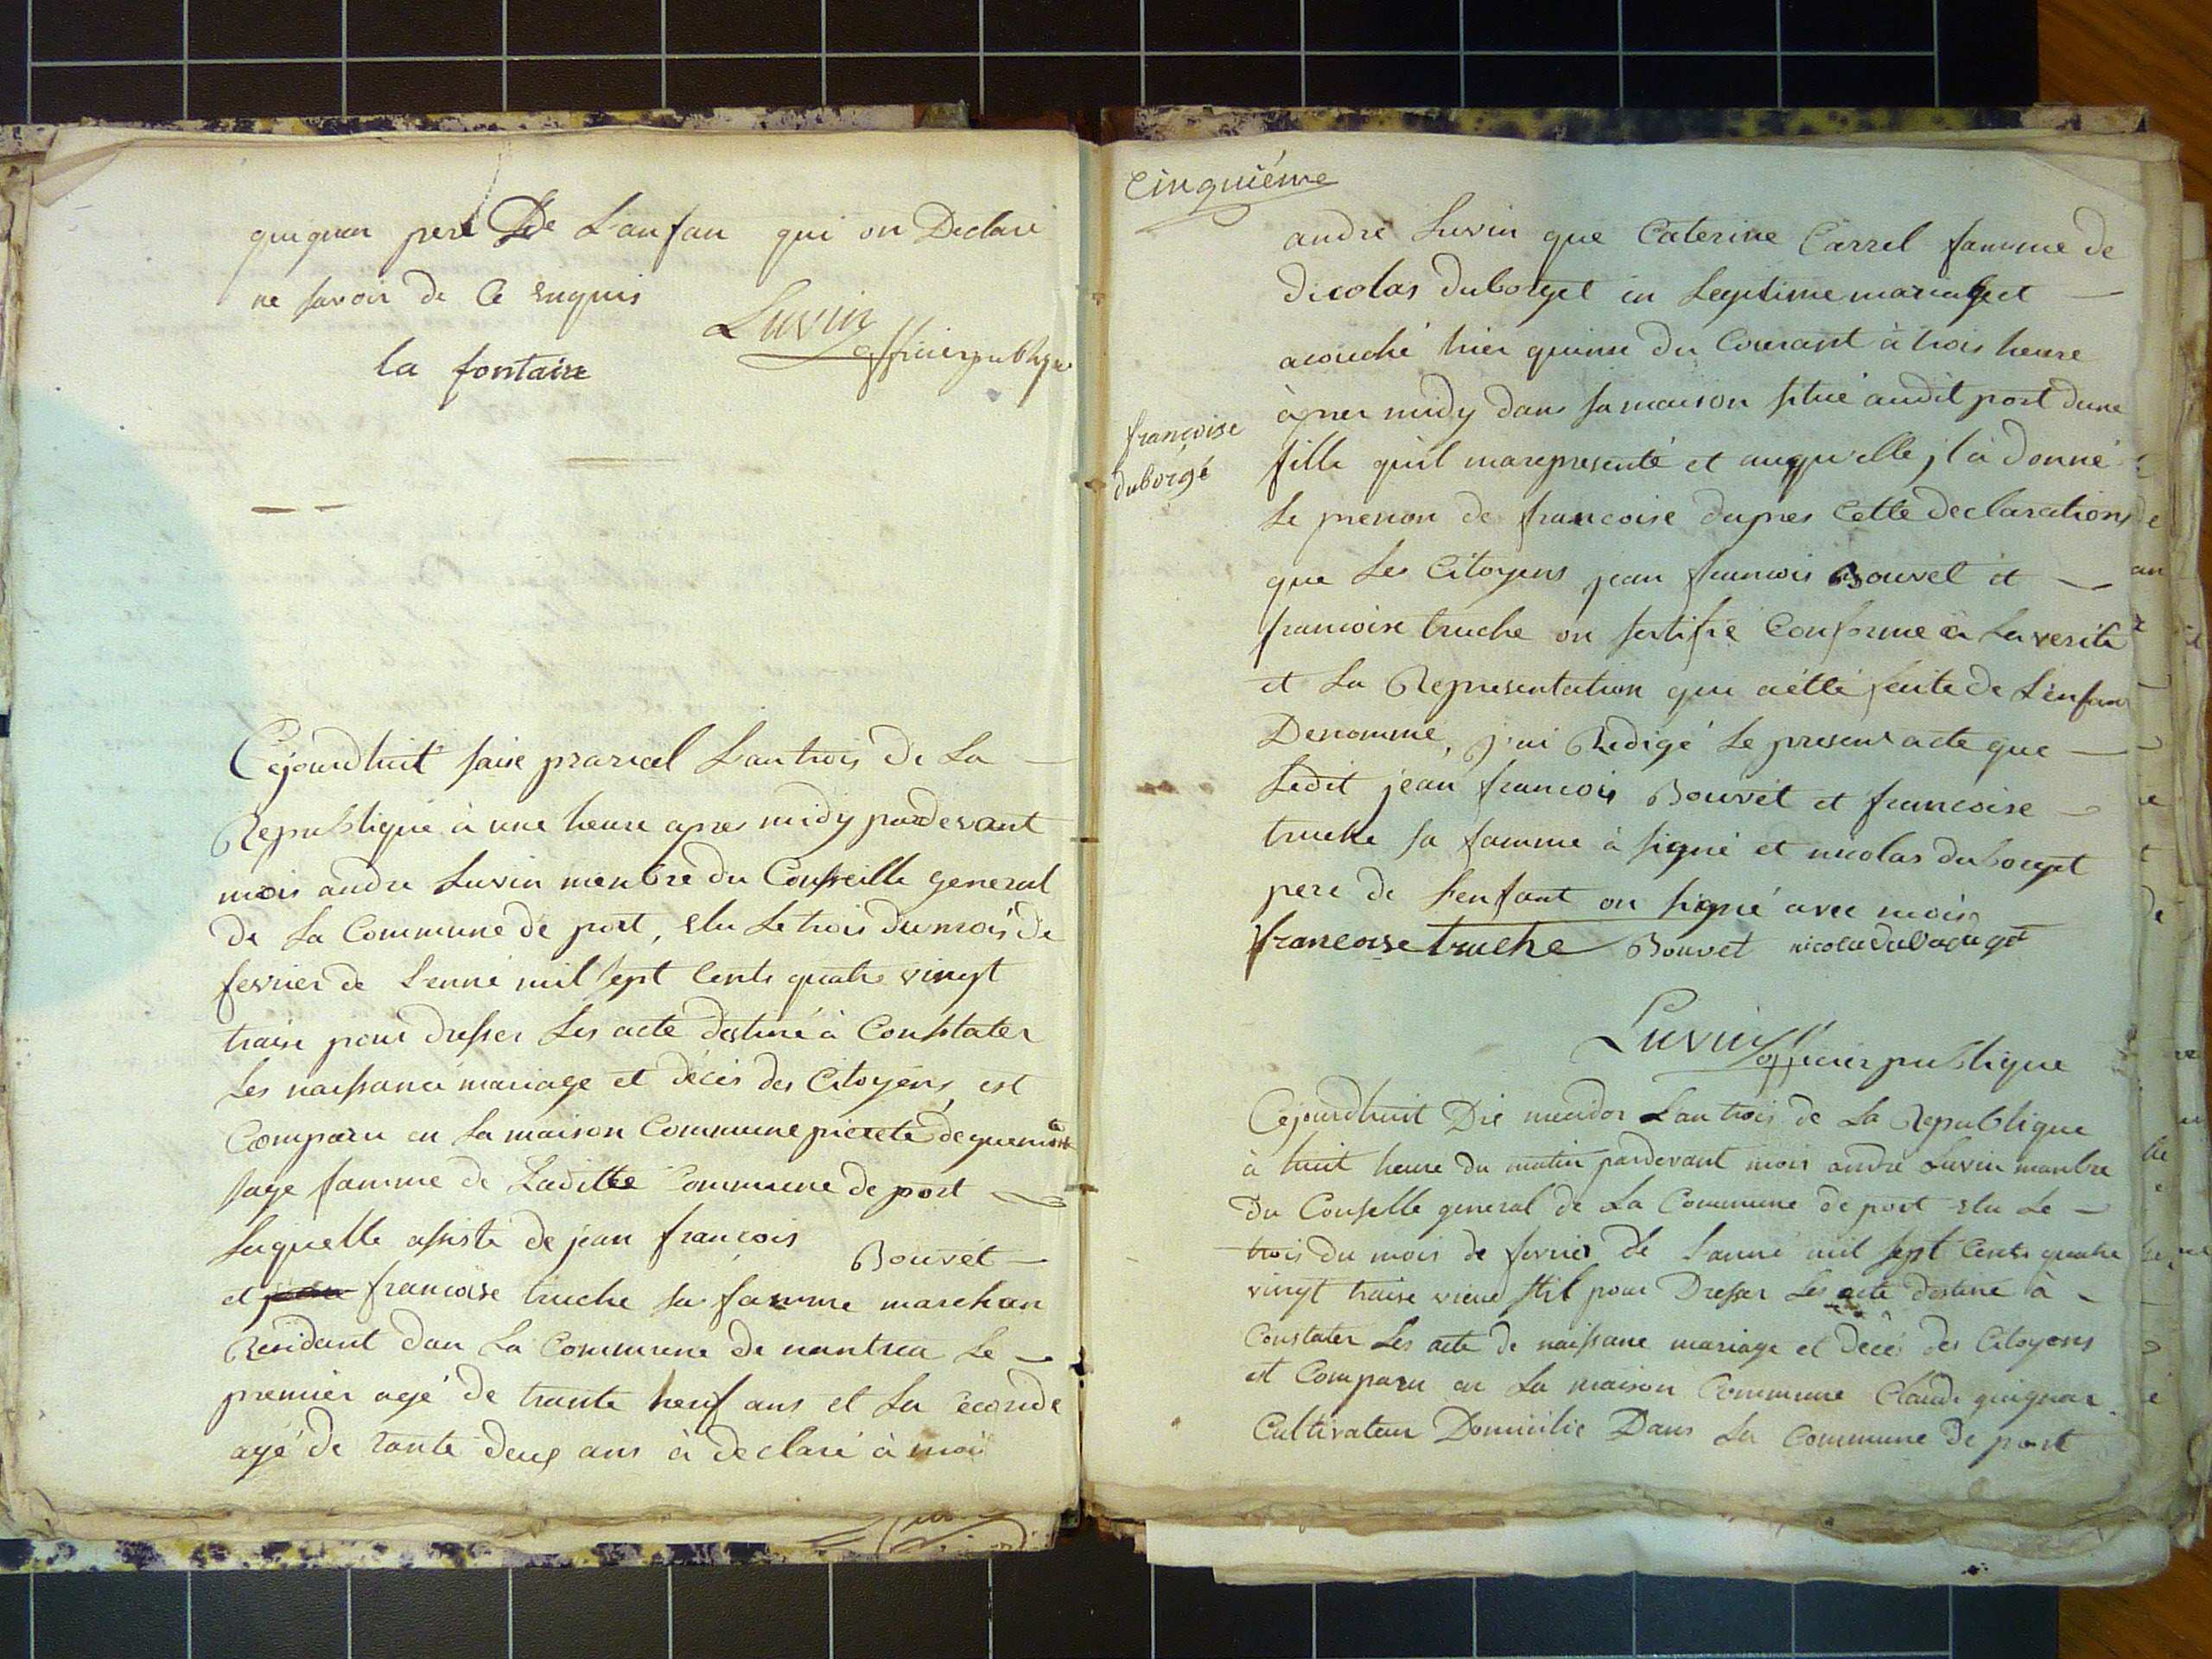 guignar pere De Lanfan qui on Declare
ne savoir de Ce Enquis
Luvin
officier publique
la fontaine
Cejourdhuit saise prarial Lan trois de La
Republique à une heure apres midy pardevant
mois andre Luvin menbre du Conseille general
de La Commune de port, elu Le trois du mois de
fevrier de Lenné mil sept Cents quatre vingt
traise pour dresser Les acte destiné à Constater
Les naissance mariage et décès des Citoyens, est
Comparu en La maison Commune
sage famme de Laditte Commune de port
Laquelle assisté de jean françois Bouvet
et francoise truche sa famme marchan
Residant dan La Commune de nantua Le
premier agé de trante neuf ans et La ceconde
agé de tante deux ans à declaré à moi
Cinquiéme
andre Luvin que Caterine Carrel famme de
nicolas duborget en Legitime mariage et
acouché hier quinse du Courant à trois heure
àpres midy dans sa maison situé audit port dune
fille quil marepresenté et auquelle jl à donné
françoise
duborgé
Le prenon de francoise dapres Cette declarations
que Les Citoyens jean francois Bouvet et
francoise truche on sertifié Conforme à La verité
et La Representation qui aétté faite de Lenfan
Denommé, j'ai Redigé Le present acte que
Ledit jean francois Bouvet et francoise
truche sa famme à signé et nicolas duborget
pere de Lenfant on signé avec mois
francoise truche Bouvet nicolas duborget
Luvin
officier publique
Cejourdhuit Dis mecidor Lan trois de La Republique
à huit heure du matin pardevant mois andré Luvin manbre
du Conselle general de La Commune de port elu Le
trois du mois de fevrier de Lanné mil sept Cents quatre
vingt traise vieux stil pour Dresser Les acte destiné à
Constater Les acte de naissane mariage et décé des Citoyens
est Comparu en La maison Commune Claude guignar
Cultivateur Domicilié Dans La Commune de port